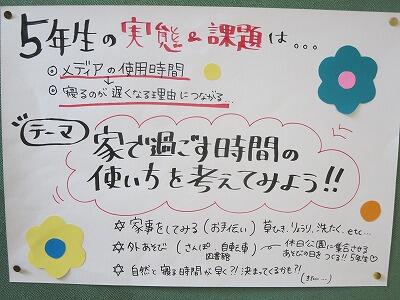 5年生の実態&課題は...
◎メディアの使用時間
◎寝るのが遅くなる理由につながる...
テーマ
家で過ごす時間の
使い方を考えてみよう!!
☆家事をしてみる(お手伝い) 草むしり、りょうり、洗たく、etc...
☆外あそび(さんぽ、自転車) 休日公園に集合させる
図書館 あそびの日をつくる!!5年生♡
☆自然と寝る時間が早く?!決まってくるかも?!